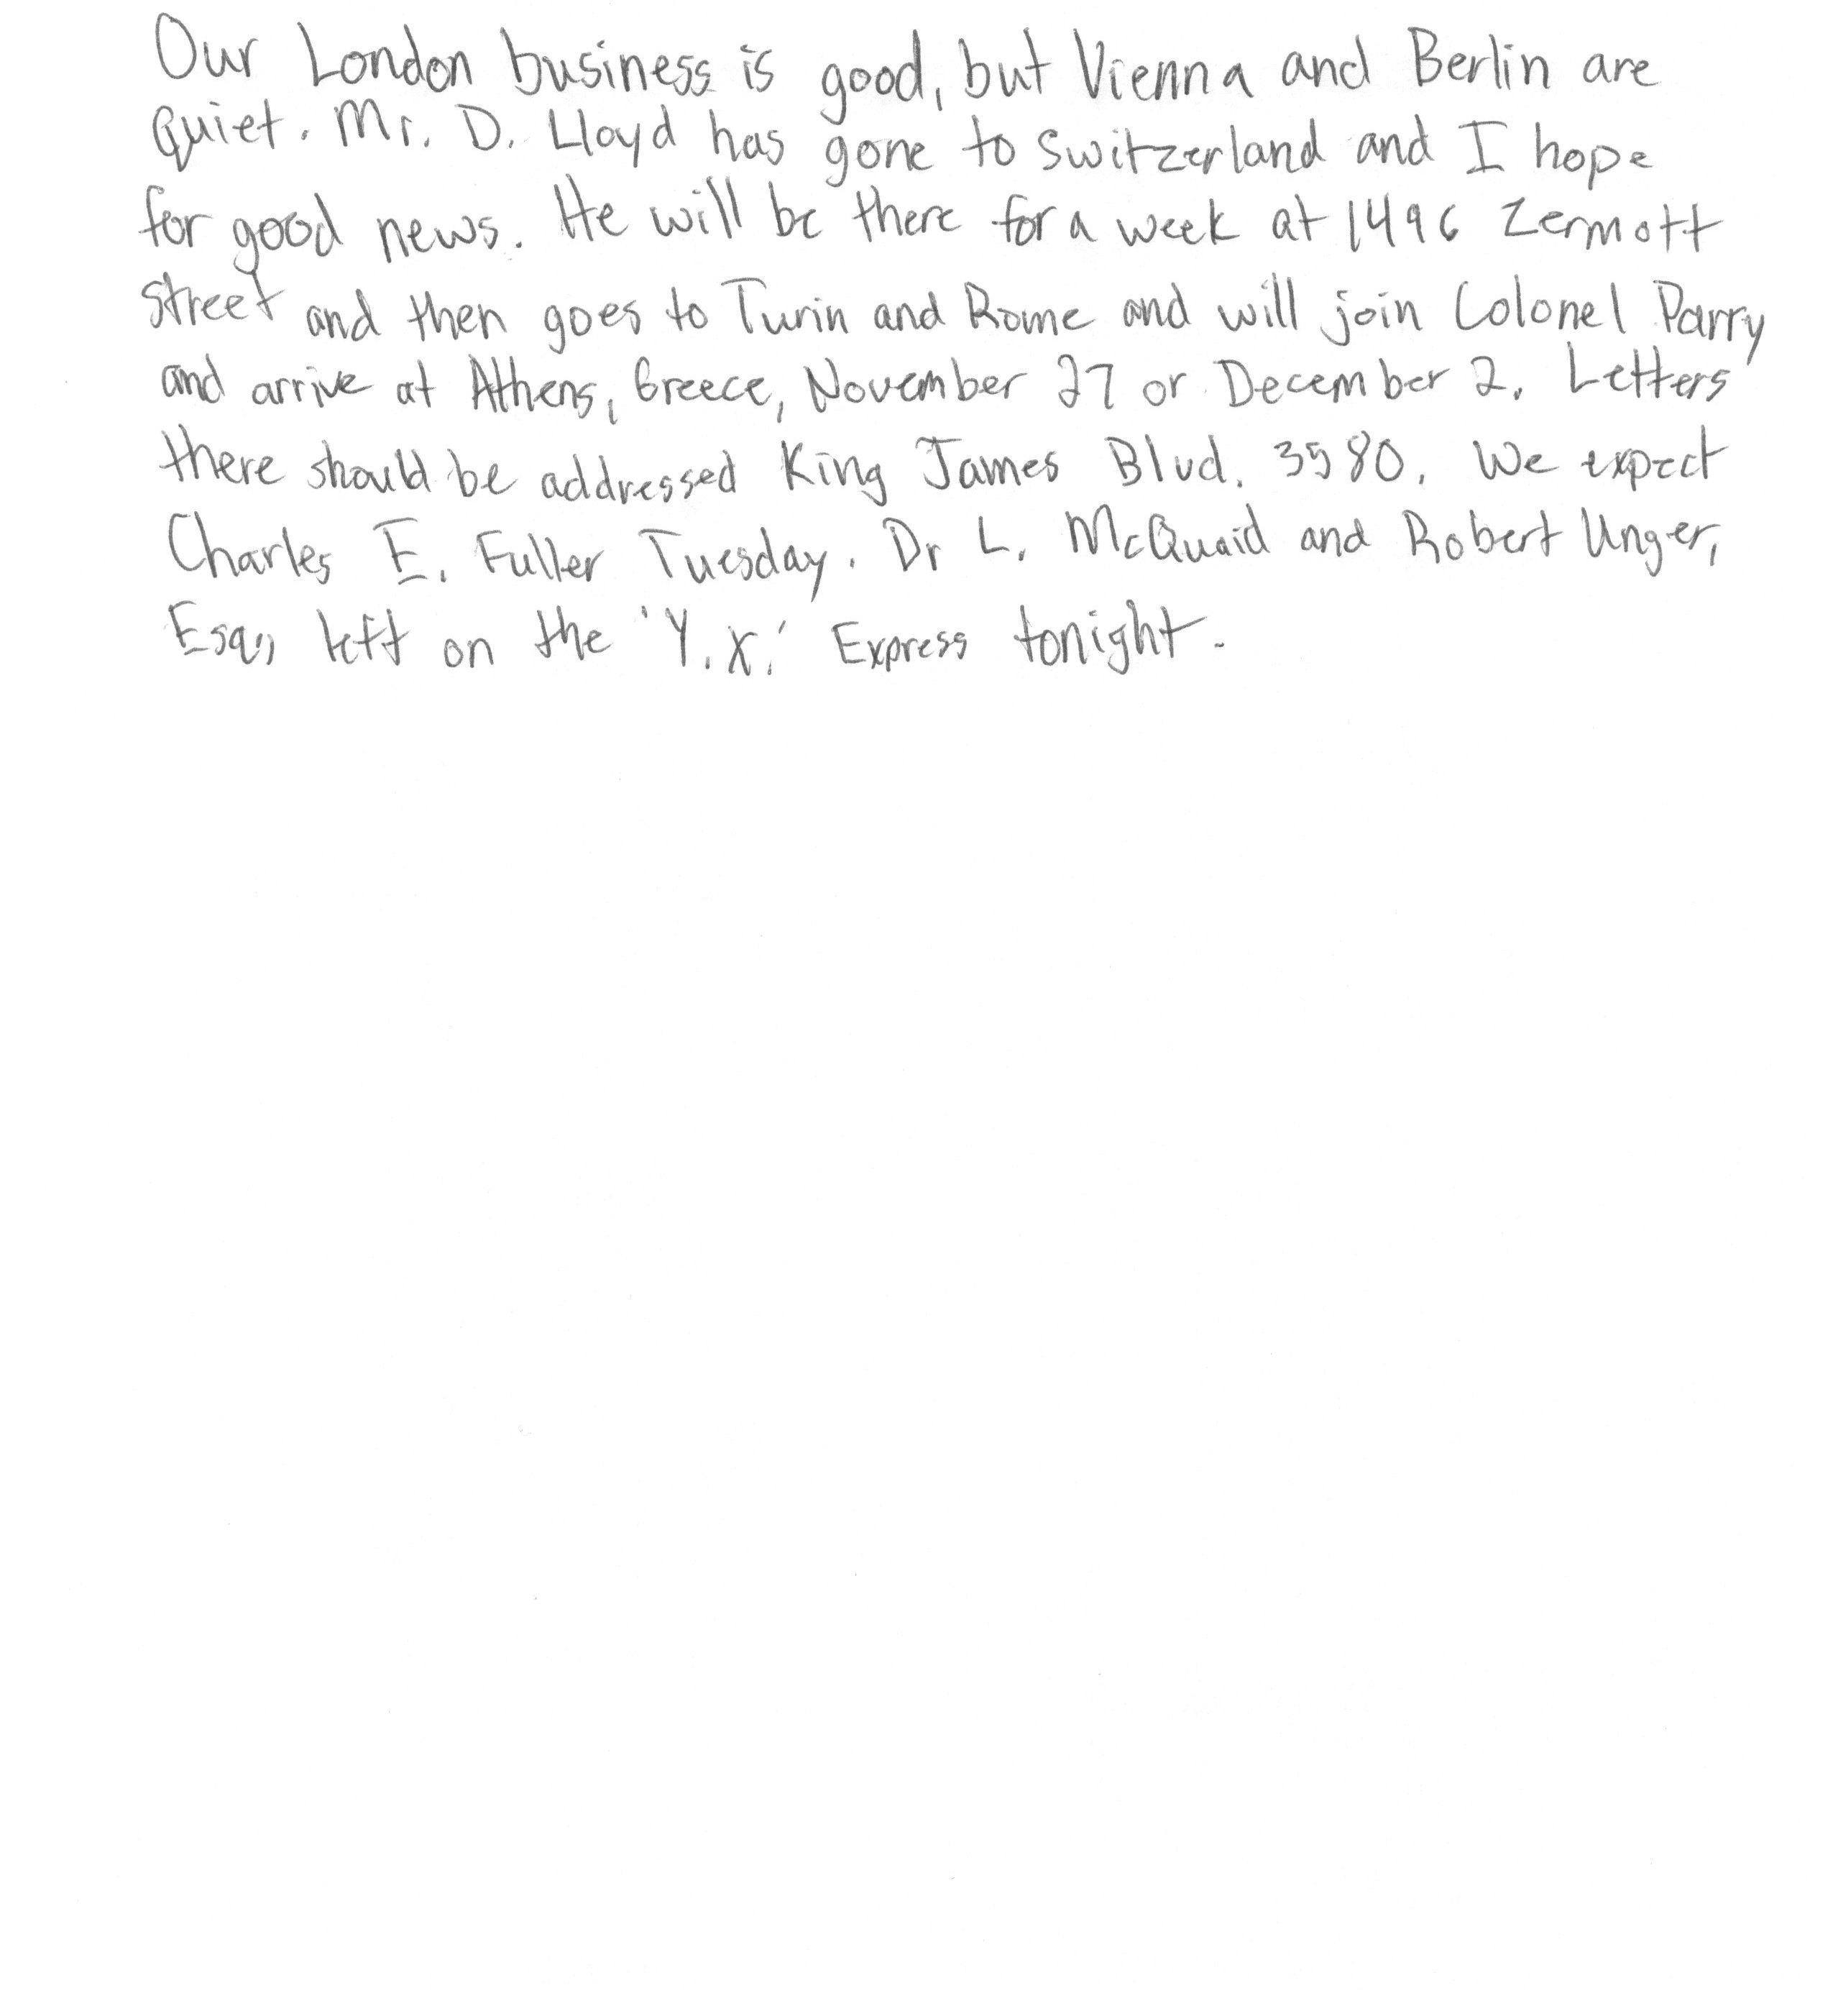 Our London business is good, but Vienna and Berlin are
quiet. Mr. D. Lloyd has gone to Switzerland and I hope
for good news. He will be there for a week at 1496 Zermott
street and then goes to Turin and Rome and will join Colonel Parry
and arrive at Athens, Greece, November 27 or December 2. Letters
there should be addressed King James Blvd. 3580. We expect
Charles E. Fuller Tuesday. Dr L. McQuaid and Robert Unger,
Esq., left on the 'Y.X.' Express tonight.